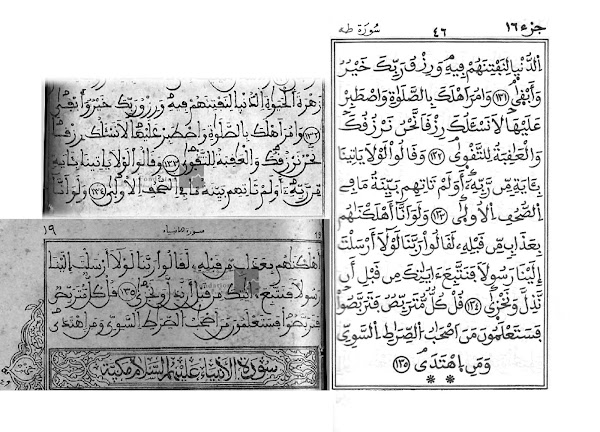 جزء ١٦ ٤٦ سُورَة طه
الدُّنْيَا لِنَفْتِنَهُمْ فِيهِ وَرِزْقُ رَبِّكَ خَيْرٌ
وَأَبْقَىٰ ١٣١ وَامُرَ اهْلَكَ بِالصَّلَوٰةِ وَاصْطَبِرْ
عَلَيْهَا لَا نَسْـَٔلُكَ رِزْقًا نَّحْنُ نَرْزُقُكَ
وَالْعَٰقِبَةُ لِلتَّقْوَىٰ ١٣٢ وَقَالُوا لَوْلَا يَاتِينَا
بِـَٔايَةٍ مِّن رَّبِّهِ أَوَلَمْ تَاتِهِم بَيِّنَةُ مَا فِي
الصُّحُفِ الْأُولَىٰ ١٣٣ وَلَوَ انَّا أَهْلَكْنَٰهُم
بِعَذَابٍ مِّن قَبْلِهِ لَقَالُوا رَبَّنَا لَوْلَا أَرْسَلْتَ
إِلَيْنَا رَسُولًا فَنَتَّبِعَ ءَايَٰتِكَ مِن قَبْلِ أَن
نَّذِلَّ وَنَخْزَىٰ ١٣٤ قُلْ كُلٌّ مُّتَرَبِّصٌ فَتَرَبَّصُوا
فَسَتَعْلَمُونَ مَنَ اصْحَٰبُ الصِّرَٰطِ السَّوِيِّ
وَمَنِ اهْتَدَىٰ ١٣٥
زهرة الحيوة الدنيا لنفتنهم فيه ورزق ربك خير وأبقى
وامر اهلك بالصلوة واصطبر عليها لا نسئلك رزقا
نحن نرزقك والعقبة للتقوى وقالوا لولا ياتينا باية
من ربه أولم تاتهم بينة ما في الصحف الأولى ولو أنا
١٩ سورة الانبياء
أهلكنهم بعذاب من قبله لقالوا ربنا لولا أرسلت إلينا
رسولا فنتبع ءايتك من قبل أن نذل ونخزى قل كل متربص
فتربصوا فستعلمون من اصحب الصرط السوي ومن اهتدى
سورة الأنبياء عليهم السلام مكية